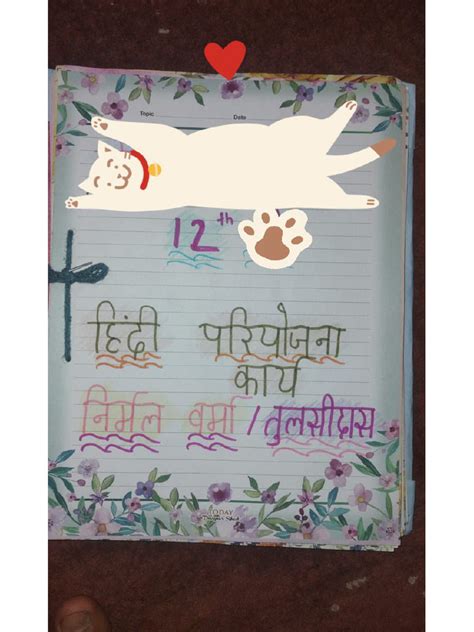 Topic Date
12th
हिंदी परियोजना
कार्य
निर्मल वर्मा / तुलसीदास
TODAY